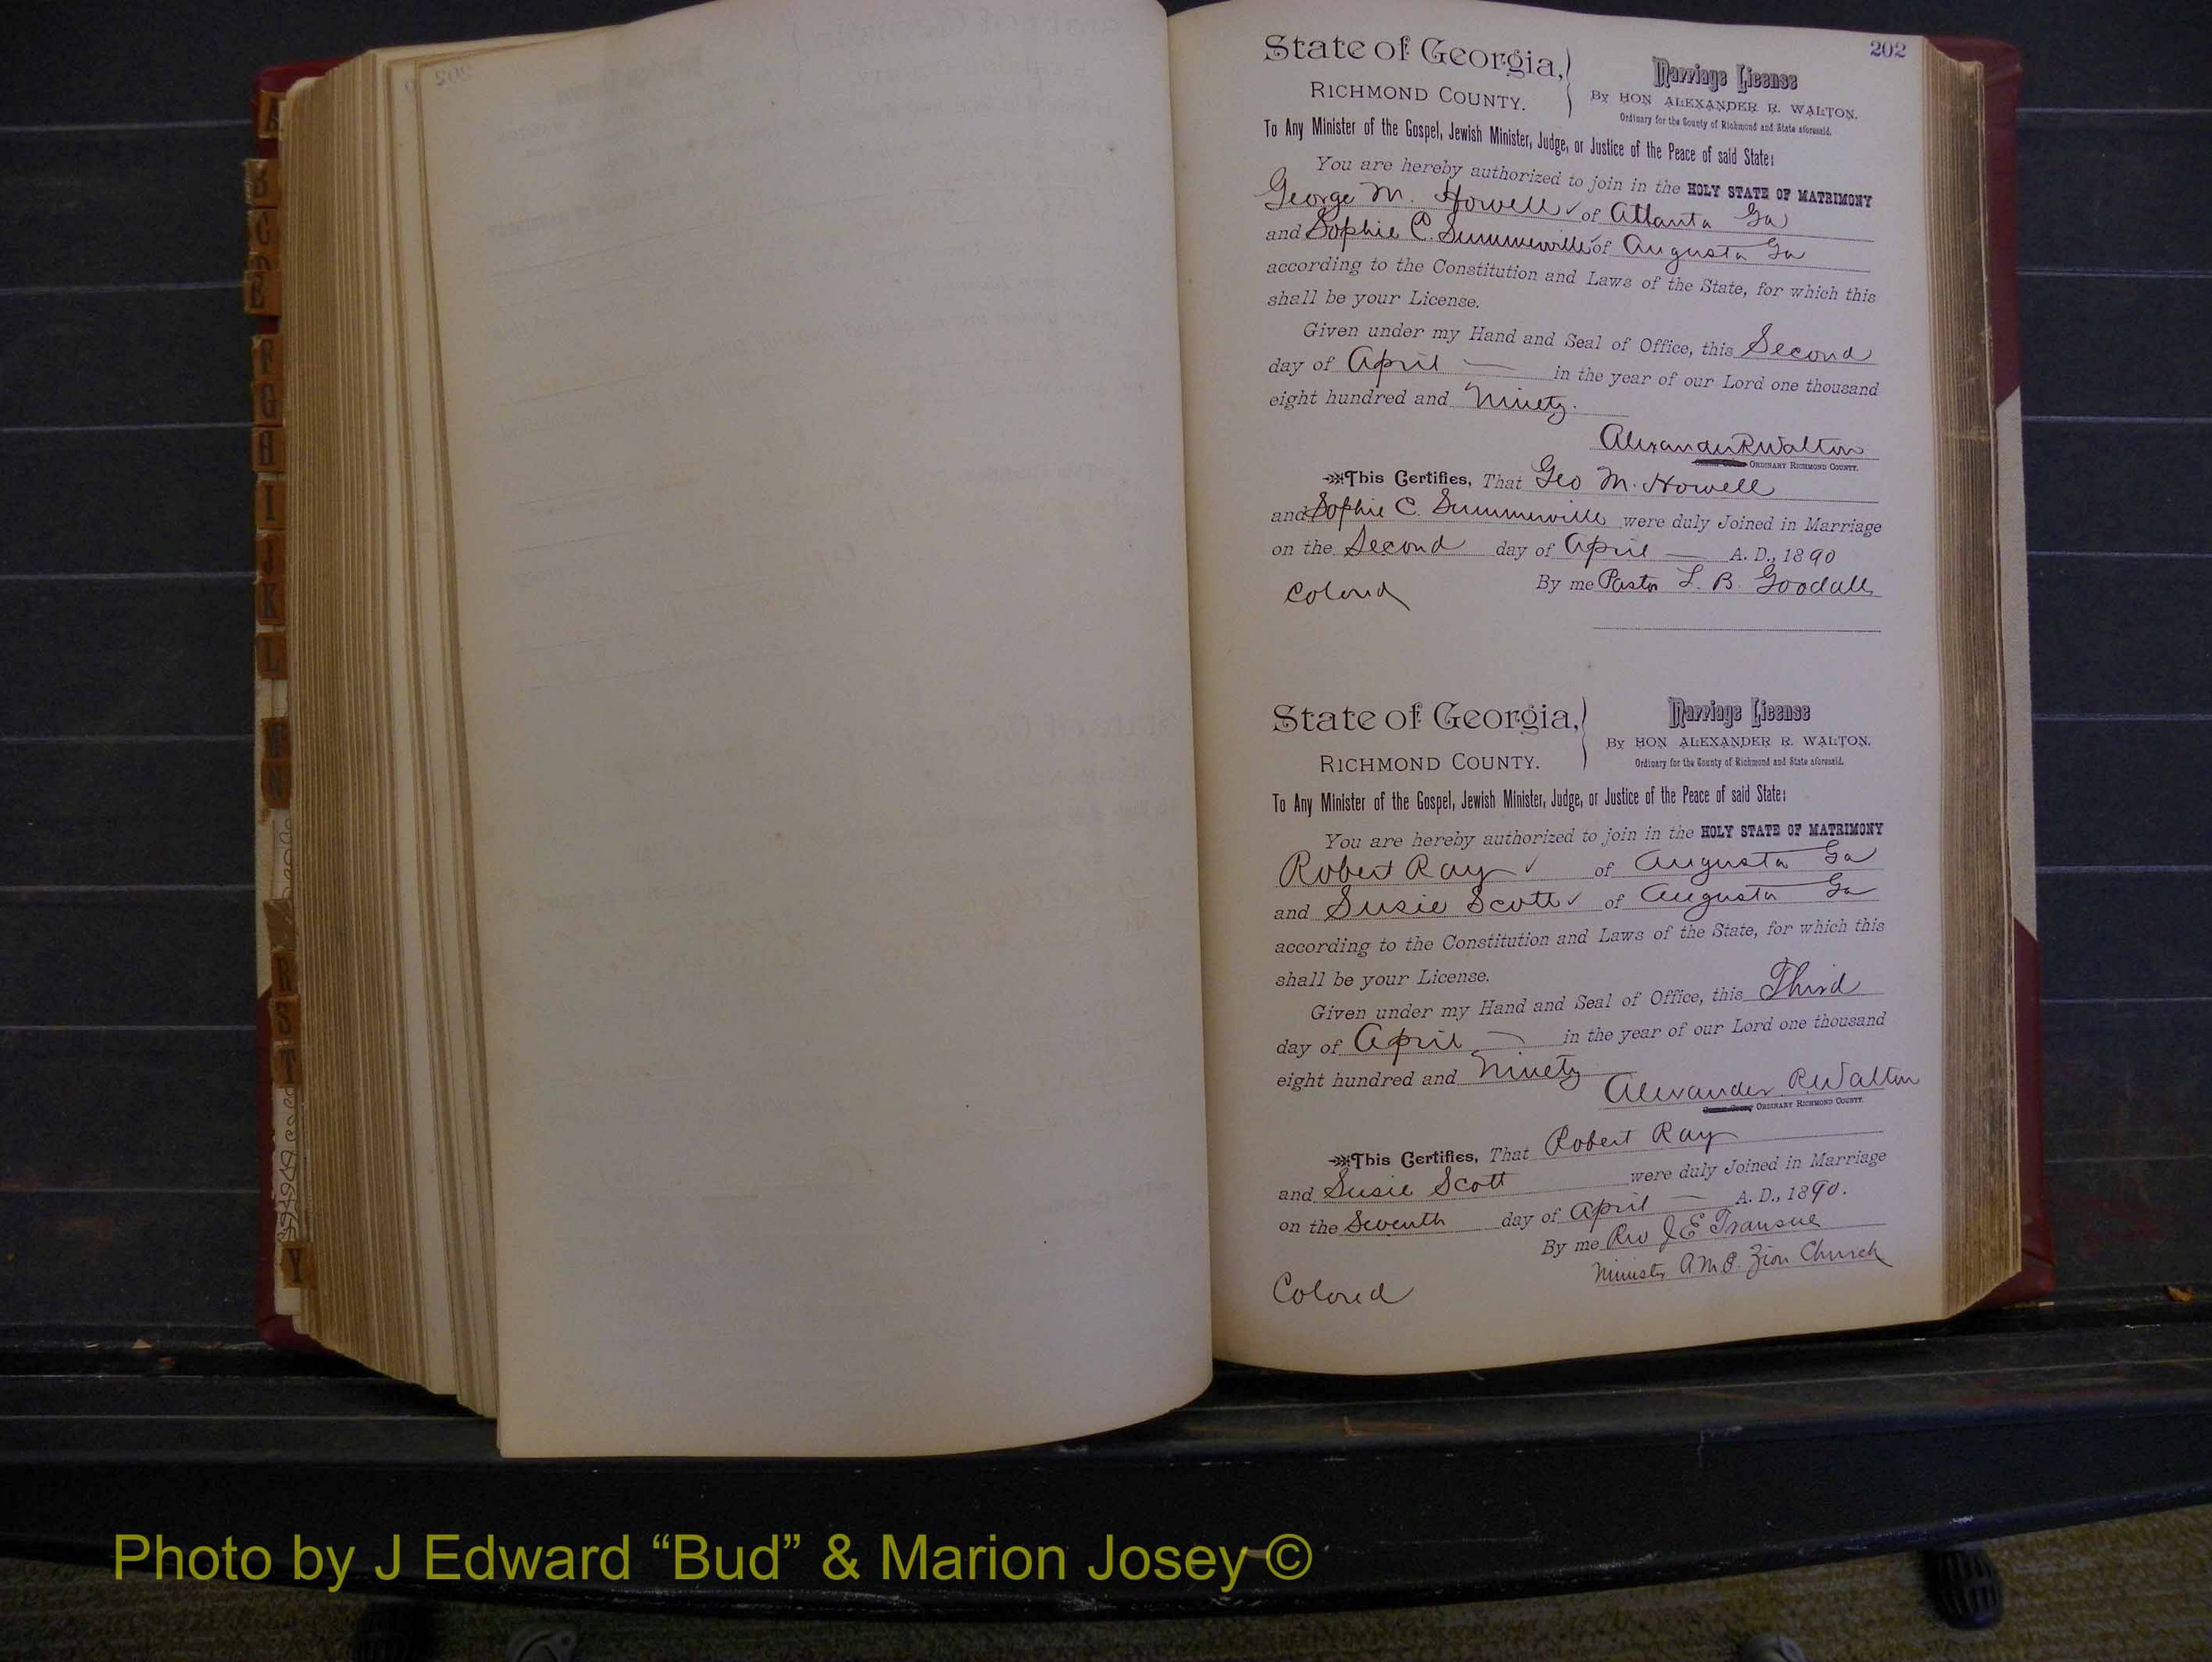 202
State of Georgia,
RICHMOND COUNTY.
Marriage License
By HON ALEXANDER R. WALTON,
Ordinary for the County of Richmond and State aforesaid.
To Any Minister of the Gospel, Jewish Minister, Judge, or Justice of the Peace of said State:
You are hereby authorized to join in the HOLY STATE OF MATRIMONY
George M. Howell ✓ of Atlanta Ga
and Sophie C. Summerville ✓ of Augusta Ga
according to the Constitution and Laws of the State, for which this
shall be your License.
Given under my Hand and Seal of Office, this Second
day of April — in the year of our Lord one thousand
eight hundred and Ninety.
Alexander R Walton
ORDINARY RICHMOND COUNTY.
This Certifies, That Geo M. Howell
and Sophie C. Summerville were duly Joined in Marriage
on the Second day of April — A. D., 1890
By me Pastor L. B. Goodall
Colored
State of Georgia,
RICHMOND COUNTY.
Marriage License
By HON ALEXANDER R. WALTON,
Ordinary for the County of Richmond and State aforesaid.
To Any Minister of the Gospel, Jewish Minister, Judge, or Justice of the Peace of said State:
You are hereby authorized to join in the HOLY STATE OF MATRIMONY
Robert Ray ✓ of Augusta Ga
and Susie Scott ✓ of Augusta Ga
according to the Constitution and Laws of the State, for which this
shall be your License.
Given under my Hand and Seal of Office, this Third
day of April — in the year of our Lord one thousand
eight hundred and Ninety
Alexander R Walton
ORDINARY RICHMOND COUNTY.
This Certifies, That Robert Ray
and Susie Scott were duly Joined in Marriage
on the Seventh day of April — A. D., 1890.
By me Rev J E Transue
Minister A M E. Zion Church
Colored
Photo by J Edward “Bud” & Marion Josey ©